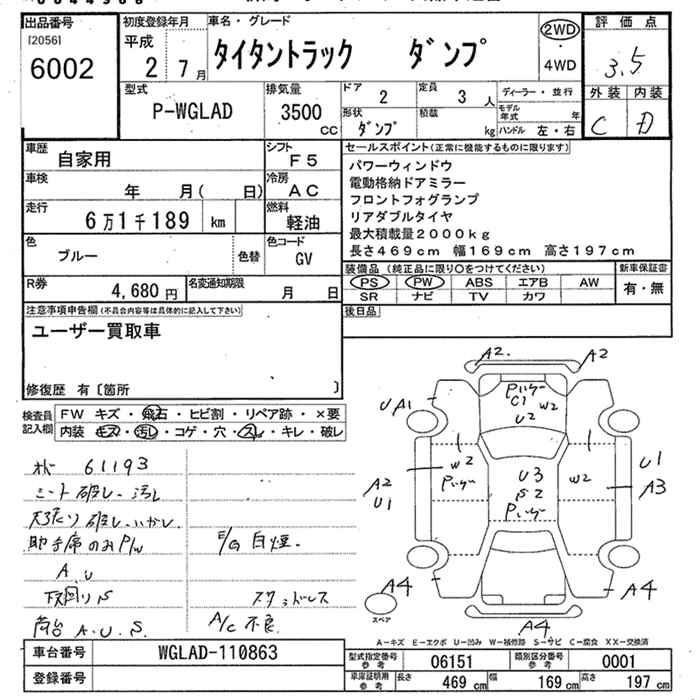 出品番号
[2056]
6002
初度登録年月
平成
2 7月
車名・グレード
タイタントラック ダンプ
2WD
・
4WD
評価点
3.5
外装 内装
C D
型式
P-WGLAD
排気量
3500
cc
ドア 2
定員 3 人
形状 ダンプ
積載 kg
ディーラー・並行
モデル年式 年
ハンドル 左・右
車歴
自家用
シフト
F5
車検
年 月( 日)
冷房
AC
走行
6万1千189 km
燃料
軽油
色
ブルー
色替
色コード
GV
R券
4,680 円
名変通知期限
月 日
セールスポイント(正常に機能するものに限ります)
パワーウィンドウ
電動格納ドアミラー
フロントフォグランプ
リアダブルタイヤ
最大積載量2000kg
長さ469cm 幅169cm 高さ197cm
装備品(純正品に限り○をつけてください)
PS PW ABS エアB AW
SR ナビ TV カワ
新車保証書
有・無
後日品
注意事項申告欄(不具合内容等は具体的に記入して下さい)
ユーザー買取車
修復歴 有〔箇所 〕
検査員
記入欄
FW キズ・飛石・ヒビ割・リペア跡・×要
内装 キズ・汚レ・コゲ・穴・スレ・キレ・破レ
61193
シート破レ、汚レ
助手席のみP/W
E/G 白煙.
A U
下回り S
荷台 A.U.S.
A/C 不良
A2. A2
UA1
C1 W2
U2
W2
A2
U1
U3
S2
W2
U1
A3
A4
A4
A4
スペア
A-キズ E-エクボ U-凹み W-補修跡 S-サビ C-腐食 XX-交換済
車台番号 WGLAD-110863
登録番号
型式指定番号 参考 06151
類別区分番号 参考 0001
車庫証明用 参考 長さ 469 cm 幅 169 cm 高さ 197 cm